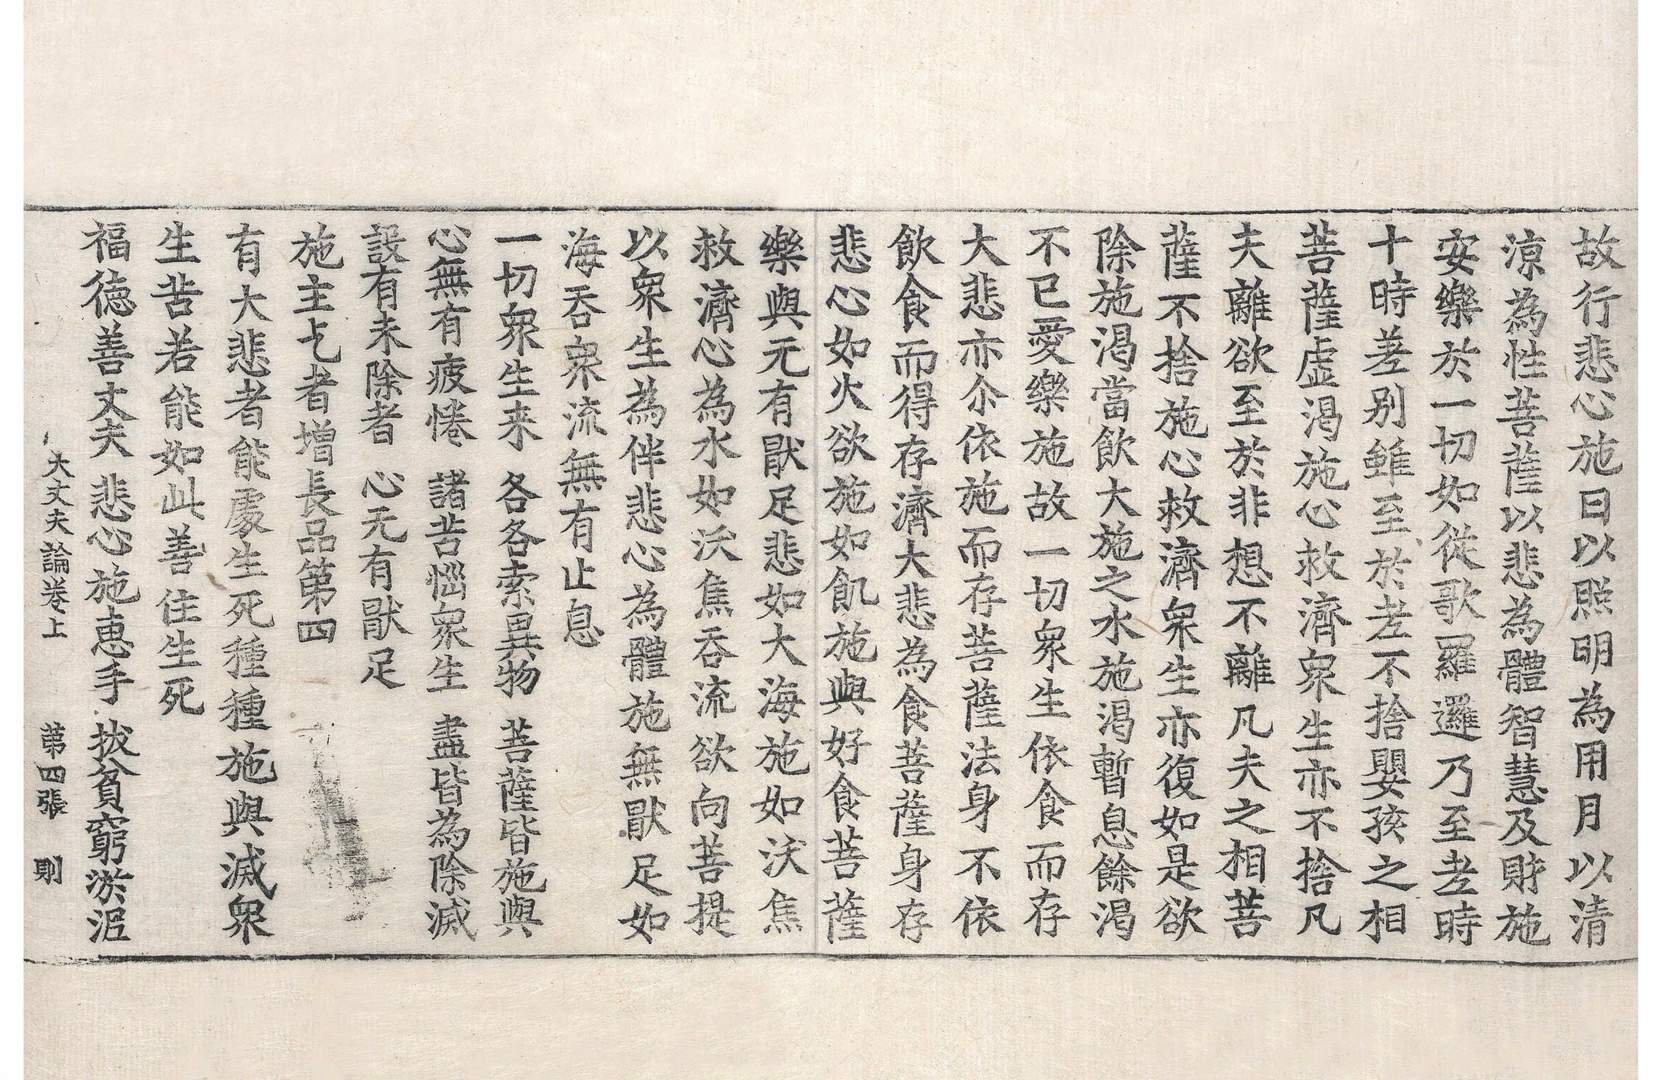 故行悲心施日以照明為用月以清
涼為性菩薩以悲為體智慧及財施
安樂於一切如從歌羅邏乃至老時
十時差別雖至於老不捨嬰孩之相
菩薩虛渴施心救濟衆生亦不捨凡
夫離欲至於非想不離凡夫之相菩
薩不捨施心救濟衆生亦復如是欲
除施渴當飲大施之水施渴暫息餘渴
不已愛樂施故一切衆生依食而存
大悲亦尒依施而存菩薩法身不依
飲食而得存濟大悲為食菩薩身存
悲心如火欲施如飢施與好食菩薩
樂與无有猒足悲如大海施如沃焦
救濟心為水如沃焦吞流欲向菩提
以衆生為伴悲心為體施無猒足如
海吞衆流無有止息
一切衆生来 各各索異物 菩薩皆施與
心無有疲惓 諸苦惱衆生 盡皆為除滅
設有未除者 心无有猒足
施主乞者增長品第四
有大悲者能處生死種種施與滅衆
生苦若能如此善住生死
福德善丈夫 悲心施恵手 拔貧窮淤泥
大丈夫論卷上 第四張 則